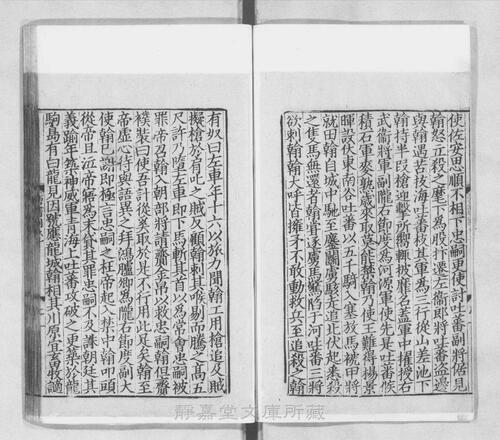 使佐安思順不相下忠嗣更使討吐蕃副將倨見
翰怒立殺之麾下為股抃遷左衞郎將吐蕃盜邊
與翰遇苦拔海吐蕃枝其軍為三行從山差池下
翰持半段槍迎擊所嚮輒披靡名蓋軍中擢授右
武衞將軍副隴右節度為河源軍使先是吐蕃候
積石軍麥熟歲來取莫能禁翰乃使王難得楊景
暉設伏東南谷吐蕃以五千騎入塞放馬褫甲將
就田翰自城中馳至鏖鬬虜駭走追北伏起悉殺
之隻馬無還者翰嘗逐虜馬驚陷于河吐蕃三將
欲刺翰翰大呼皆擁矛不敢動救兵至追殺之翰
有奴曰左車年十六以膂力聞翰工用槍追及賊
擬槍於肩叱之賊反顧翰刺其喉剔而騰之高五
尺許乃墮左車即下馬斬其首以為常會忠嗣被
罪帝召翰入朝部將請齎金帛以救忠嗣翰但齎
襆裝曰使吾計從奚取於是不行用此足矣翰至
帝虛心待與語異之拜鴻臚卿為隴右節度副大
使翰已謝即極言忠嗣之枉帝起入禁中翰叩頭
從帝且泣帝寤為末貸其罪忠嗣不及誅朝廷其
義踰年築神威軍青海上吐蕃攻破之更築於龍
駒島有白龍見因號應龍城翰相其川原宜畜牧謫
靜嘉堂文庫所藏